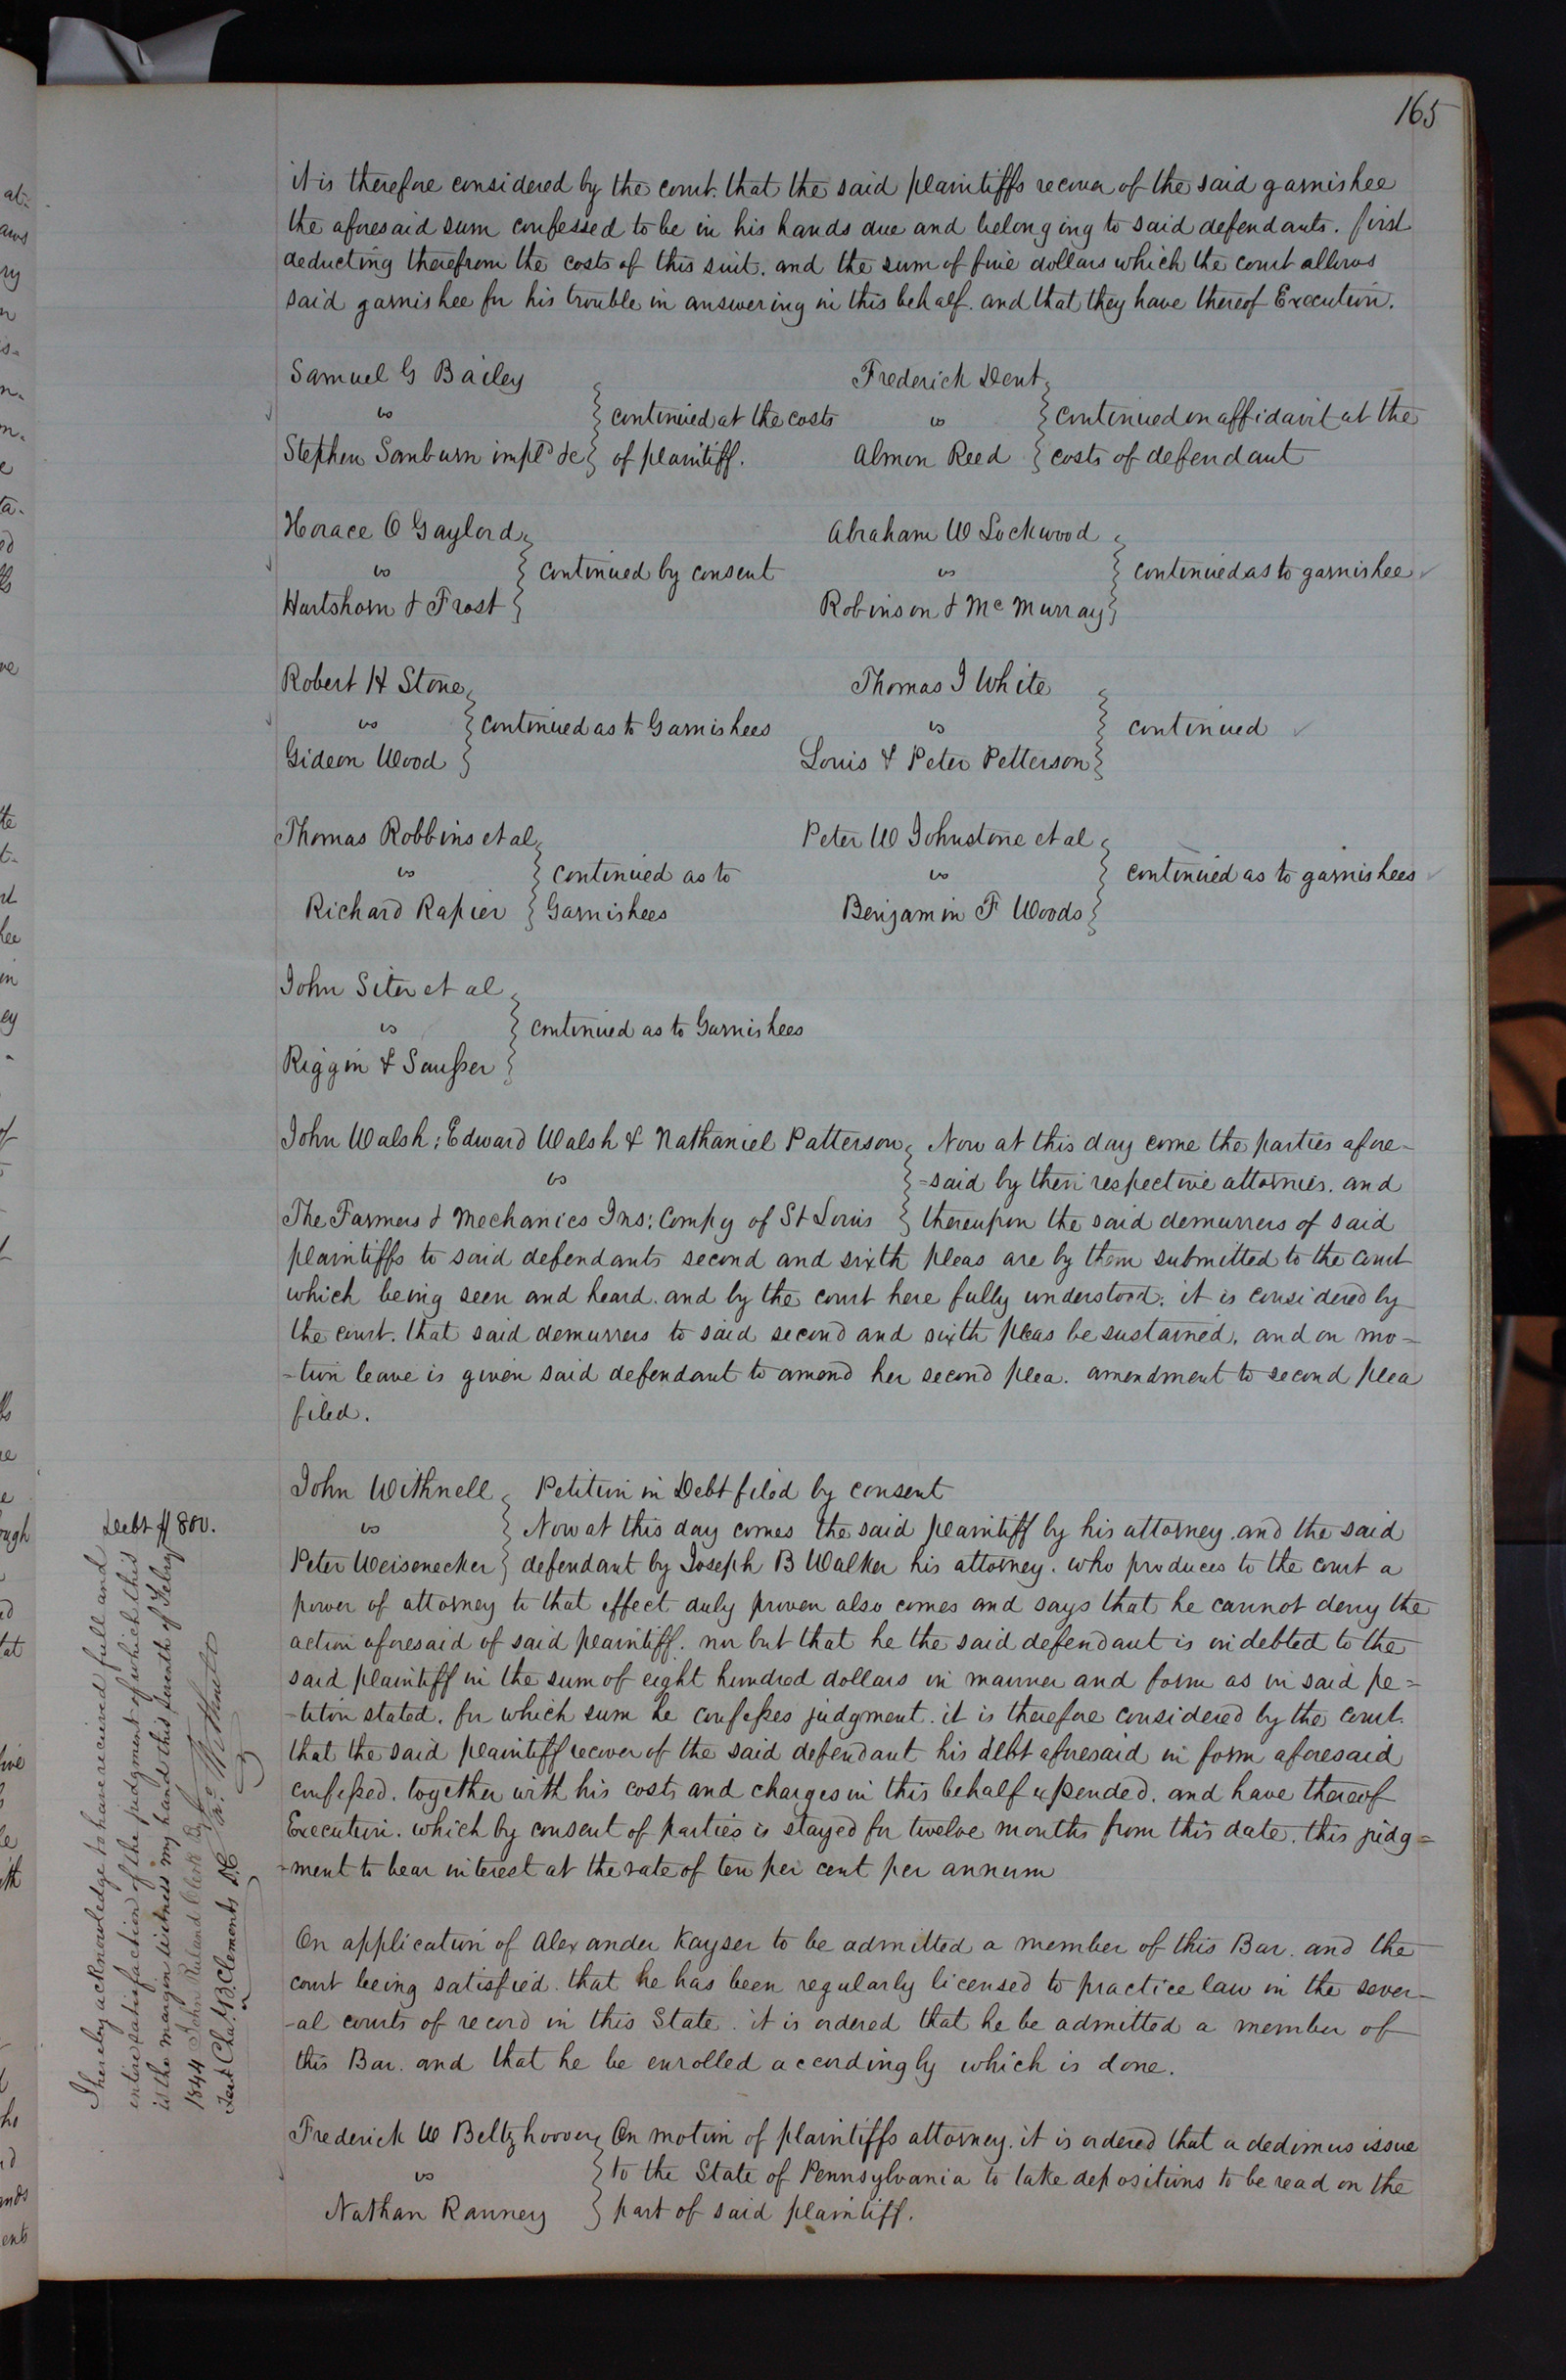 165
it is therefore considered by the court. that the said plaintiffs recover of the said garnishee
the aforesaid sum confessed to be in his hands due and belonging to said defendants. first
deducting therefrom the costs of this suit. and the sum of five dollars which the court allows
said garnishee for his trouble in answering in this behalf. and that they have thereof Execution.
Samuel G Bailey
vs
Stephen Sanburn impld &c
continued at the costs
of plaintiff.
Frederick Dent
vs
Almon Reed
continued on affidavit at the
costs of defendant
Horace O Gaylord
vs
Hartshorn & Frost
continued by consent
Abraham W Lockwood
vs
Robinson & Mc Murray
continued as to garnishee
Robert H Stone
vs
Gideon Wood
continued as to Garnishees
Thomas J White
vs
Louis & Peter Petterson
continued
Thomas Robbins et al
vs
Richard Rapier
continued as to
Garnishees
Peter W Johnstone et al
vs
Benjamin F Woods
continued as to garnishees
John Siter et al
vs
Riggin & Sausser
continued as to Garnishees
John Walsh; Edward Walsh & Nathaniel Patterson Now at this day come the parties afore-
vs -said by their respective attornies. and
The Farmers & Mechanics Ins: Compy of St Louis thereupon the said demurrers of said
plaintiffs to said defendants second and sixth pleas are by them submitted to the court
which being seen and heard. and by the court here fully understood. it is considered by
the court. that said demurrers to said second and sixth pleas be sustained. and on mo-
-tion leave is given said defendant to amend her second plea. amendment to second plea
filed.
John Withnell Petition in Debt filed by consent
vs Now at this day comes the said plaintiff by his attorney. and the said
Peter Weisenecker defendant by Joseph B Walker his attorney. who produces to the court a
power of attorney to that effect duly proven also comes and says that he cannot deny the
action aforesaid of said plaintiff. nor but that he the said defendant is indebted to the
said plaintiff in the sum of eight hundred dollars in manner and form as in said pe-
-tition stated. for which sum he confesses judgment. it is therefore considered by the court.
that the said plaintiff recover of the said defendant his debt aforesaid in form aforesaid
confessed. together with his costs and charges in this behalf expended. and have thereof
Execution. which by consent of parties is stayed for twelve months from this date. this judg-
-ment to bear interest at the rate of ten per cent per annum
Debt $800.
I hereby acknowledge to have received full and
entire satisfaction of the judgment of which this
is the margin witness my hand this seventh of Febry
1844 John Ruland Clerk By
Jno Withnell
Test Chas. B. Clements D.C
On application of Alexander Kayser to be admitted a member of this Bar. and the
court being satisfied. that he has been regularly licensed to practice law in the sever-
-al courts of record in this State. it is ordered that he be admitted a member of
this Bar. and that he be enrolled accordingly which is done.
Frederick W Beltzhoover On motion of plaintiffs attorney. it is ordered that a dedimus issue
vs to the State of Pennsylvania to take depositions to be read on the
Nathan Ranney part of said plaintiff.